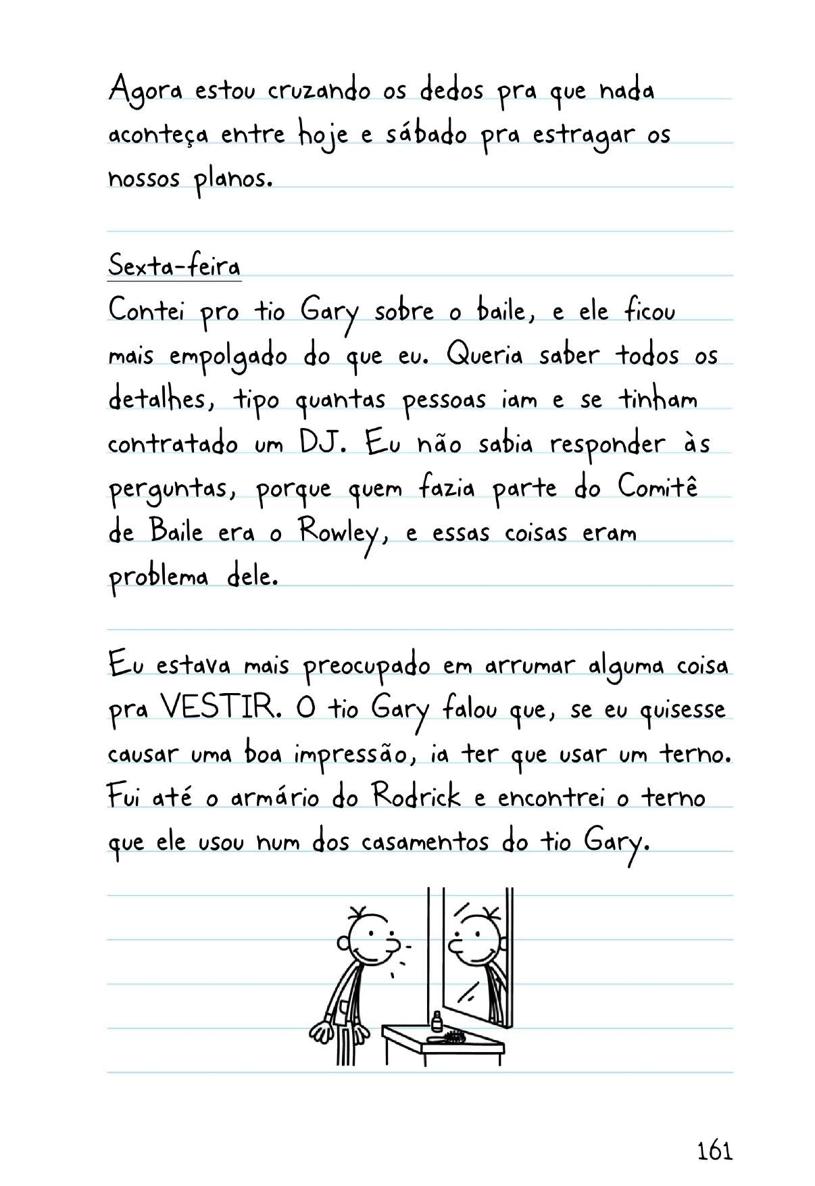 Agora estou cruzando os dedos pra que nada
aconteça entre hoje e sábado pra estragar os
nossos planos.
Sexta-feira
Contei pro tio Gary sobre o baile, e ele ficou
mais empolgado do que eu. Queria saber todos os
detalhes, tipo quantas pessoas iam e se tinham
contratado um DJ. Eu não sabia responder às
perguntas, porque quem fazia parte do Comitê
de Baile era o Rowley, e essas coisas eram
problema dele.
Eu estava mais preocupado em arrumar alguma coisa
pra VESTIR. O tio Gary falou que, se eu quisesse
causar uma boa impressão, ia ter que usar um terno.
Fui até o armário do Rodrick e encontrei o terno
que ele usou num dos casamentos do tio Gary.
161